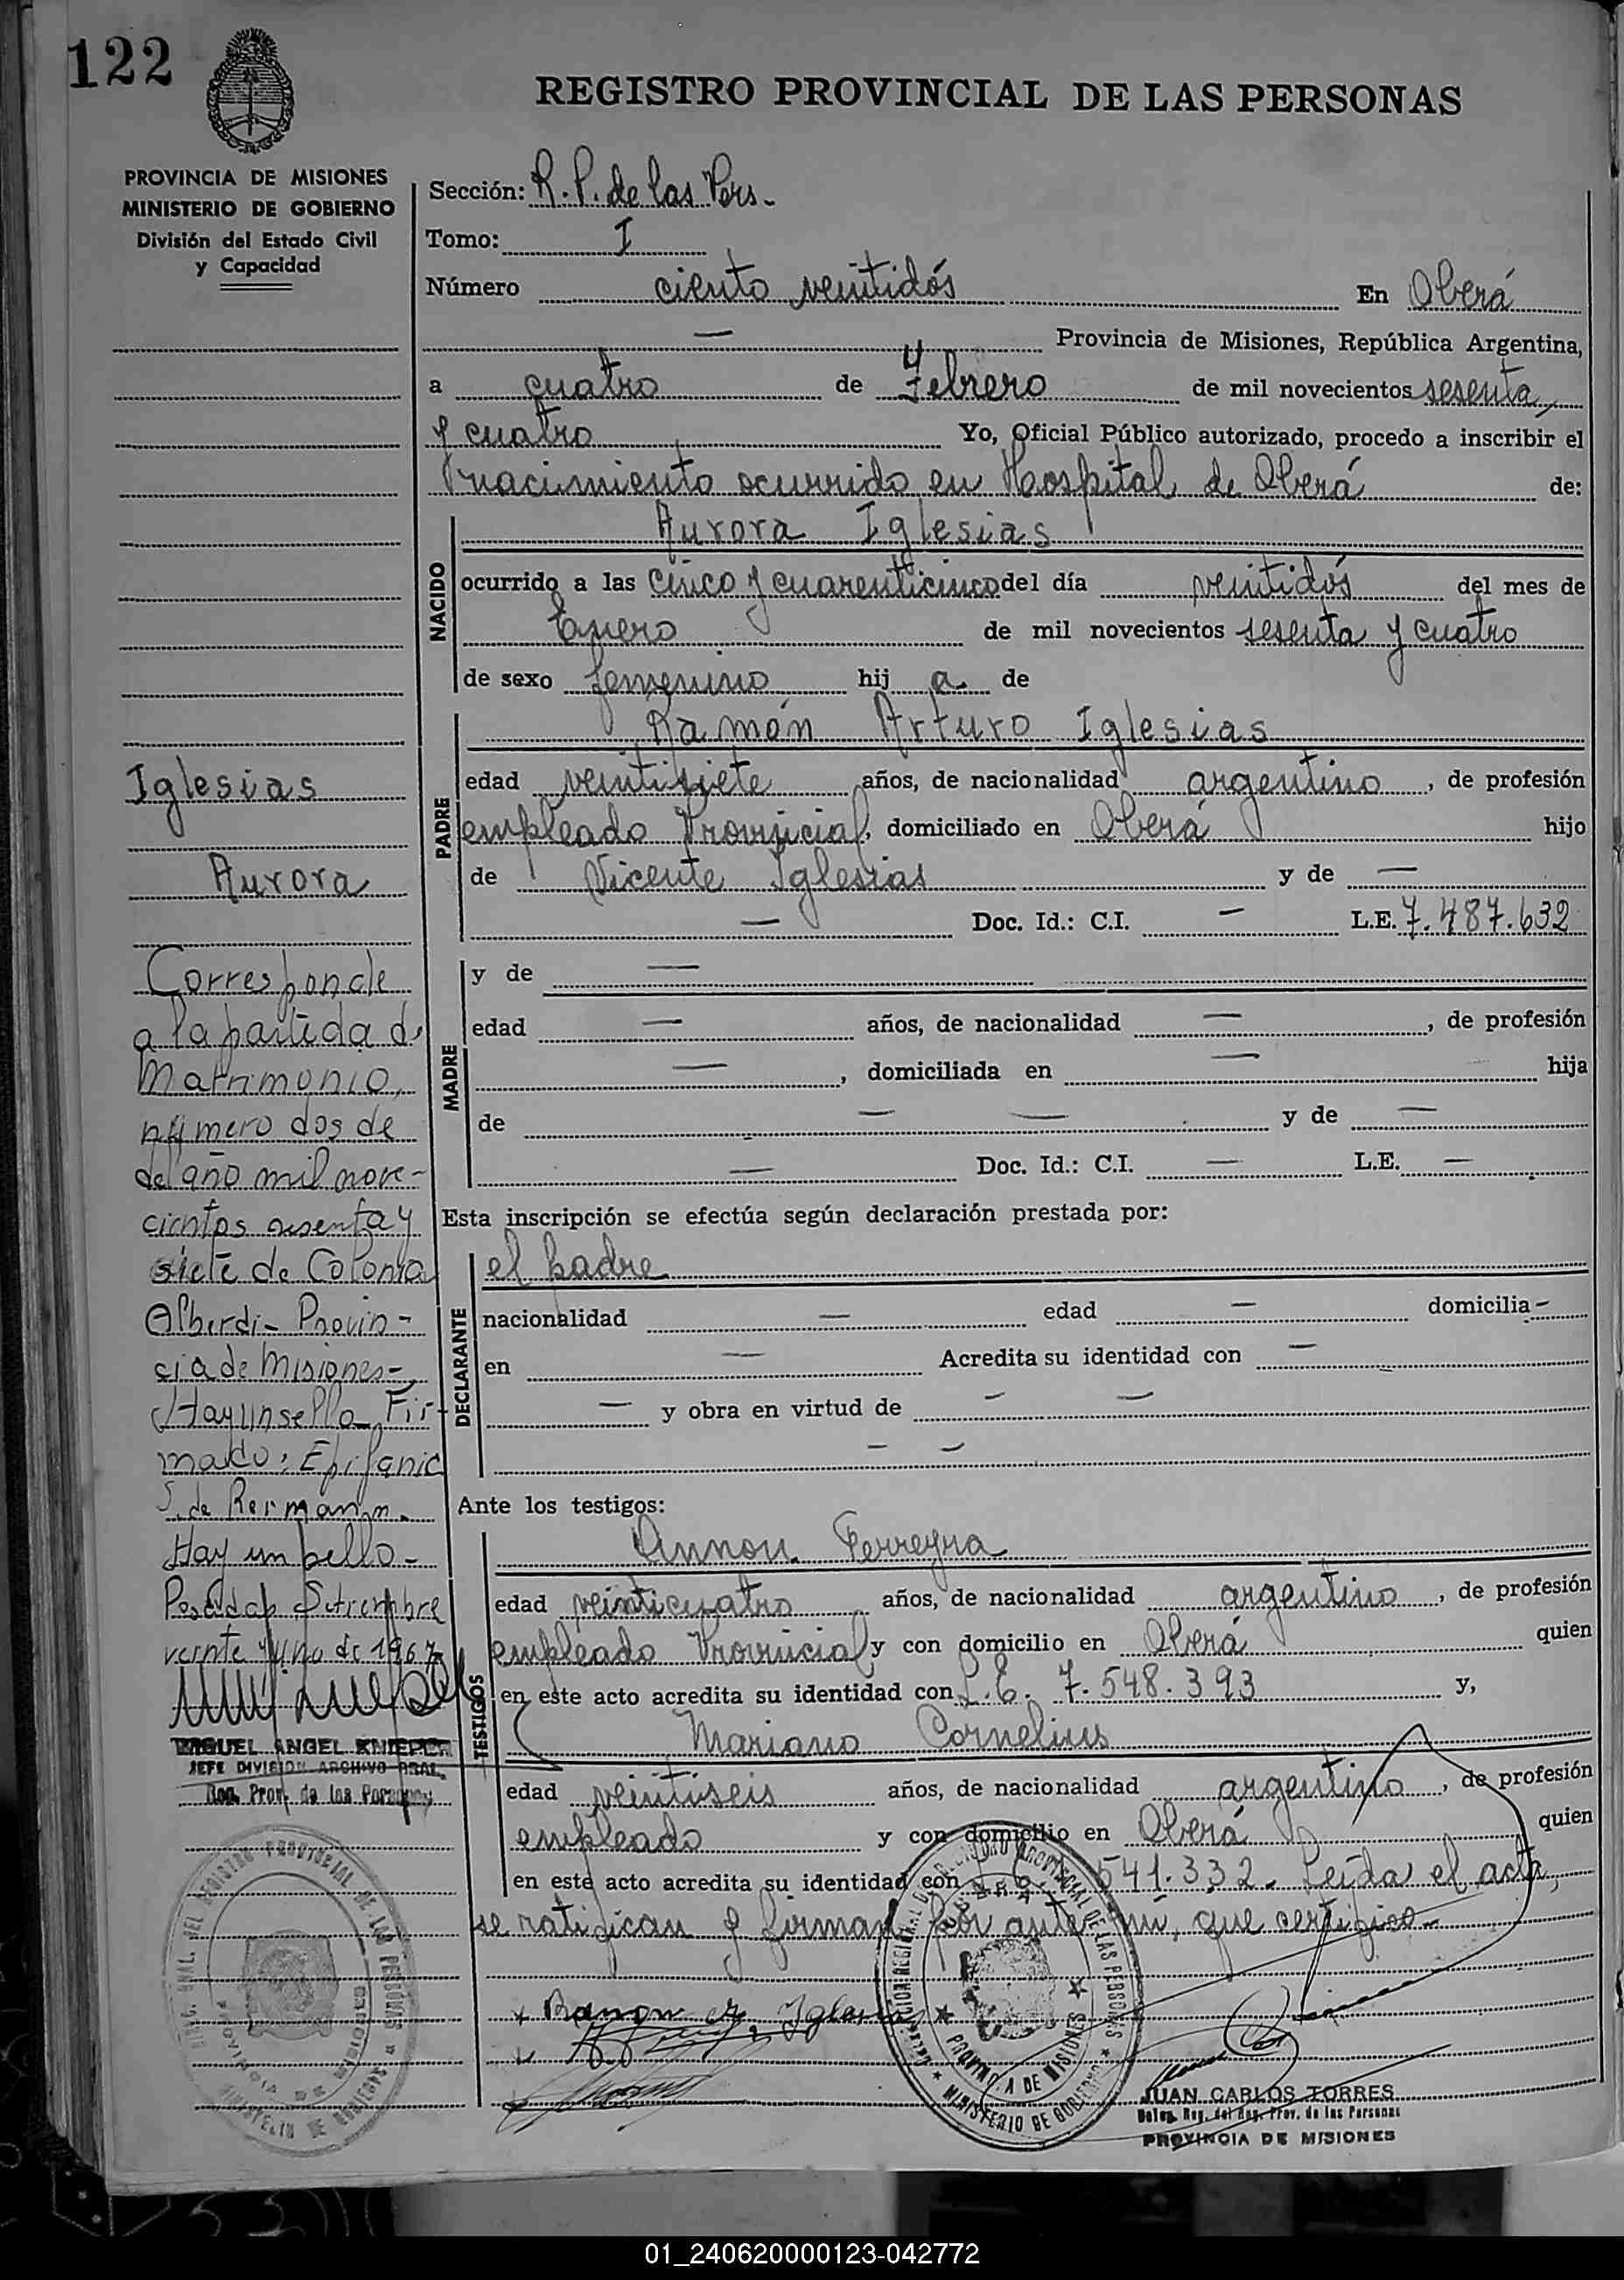 122
REGISTRO PROVINCIAL DE LAS PERSONAS
PROVINCIA DE MISIONES
MINISTERIO DE GOBIERNO
División del Estado Civil
y Capacidad
Iglesias
Aurora
Corresponde
a la partida de
Matrimonio,
número dos de
del año mil nove-
cientos sesenta y
siete de Colonia
Alberdi - Provin-
cia de Misiones -
Hay un sello Fir-
mado: Epifania
S. de Rermann.
Hay un sello -
Posadas Setiembre
veinte y uno de 1967
MIGUEL ANGEL KNIEPER
JEFE DIVISION ARCHIVO GRAL.
Reg. Prov. de las Personas
Sección: R. P. de las Pers.
Tomo: I
Número ciento veintidós En Oberá
— Provincia de Misiones, República Argentina,
a cuatro de Febrero de mil novecientos sesenta
y cuatro Yo, Oficial Público autorizado, procedo a inscribir el
nacimiento ocurrido en Hospital de Oberá de:
NACIDO
Aurora Iglesias
ocurrido a las cinco y cuarenticinco del día veintidós del mes de
Enero de mil novecientos sesenta y cuatro
de sexo femenino hij a. de
PADRE
Ramón Arturo Iglesias
edad veintisiete años, de nacionalidad argentino, de profesión
empleado Provincial, domiciliado en Oberá hijo
de Vicente Iglesias y de —
— Doc. Id.: C.I. — L.E. 7.487.632
MADRE
y de —
edad — años, de nacionalidad —, de profesión
—, domiciliada en — hija
de — — y de —
— Doc. Id.: C.I. — L.E. —
Esta inscripción se efectúa según declaración prestada por:
DECLARANTE
el padre
nacionalidad — edad — domicilia —
en — Acredita su identidad con —
— y obra en virtud de — —
— —
Ante los testigos:
TESTIGOS
Ferreyra
edad veinticuatro años, de nacionalidad argentino, de profesión
empleado Provincial y con domicilio en Oberá quien
en este acto acredita su identidad con L.E. 7.548.393 y,
Mariano Cornelius
edad veintiseis años, de nacionalidad argentino, de profesión
empleado y con domicilio en Oberá quien
en este acto acredita su identidad con 541.332. Leída el acta,
se ratifican y firman por ante mí, que certifico.
Ramon A. Iglesias
JUAN CARLOS TORRES
Deleg. Reg. del Reg. Prov. de las Personas
PROVINCIA DE MISIONES
REGISTRO PROVINCIAL DE LAS PERSONAS
PROVINCIA DE MISIONES
MINISTERIO DE GOBIERNO
01_240620000123-042772